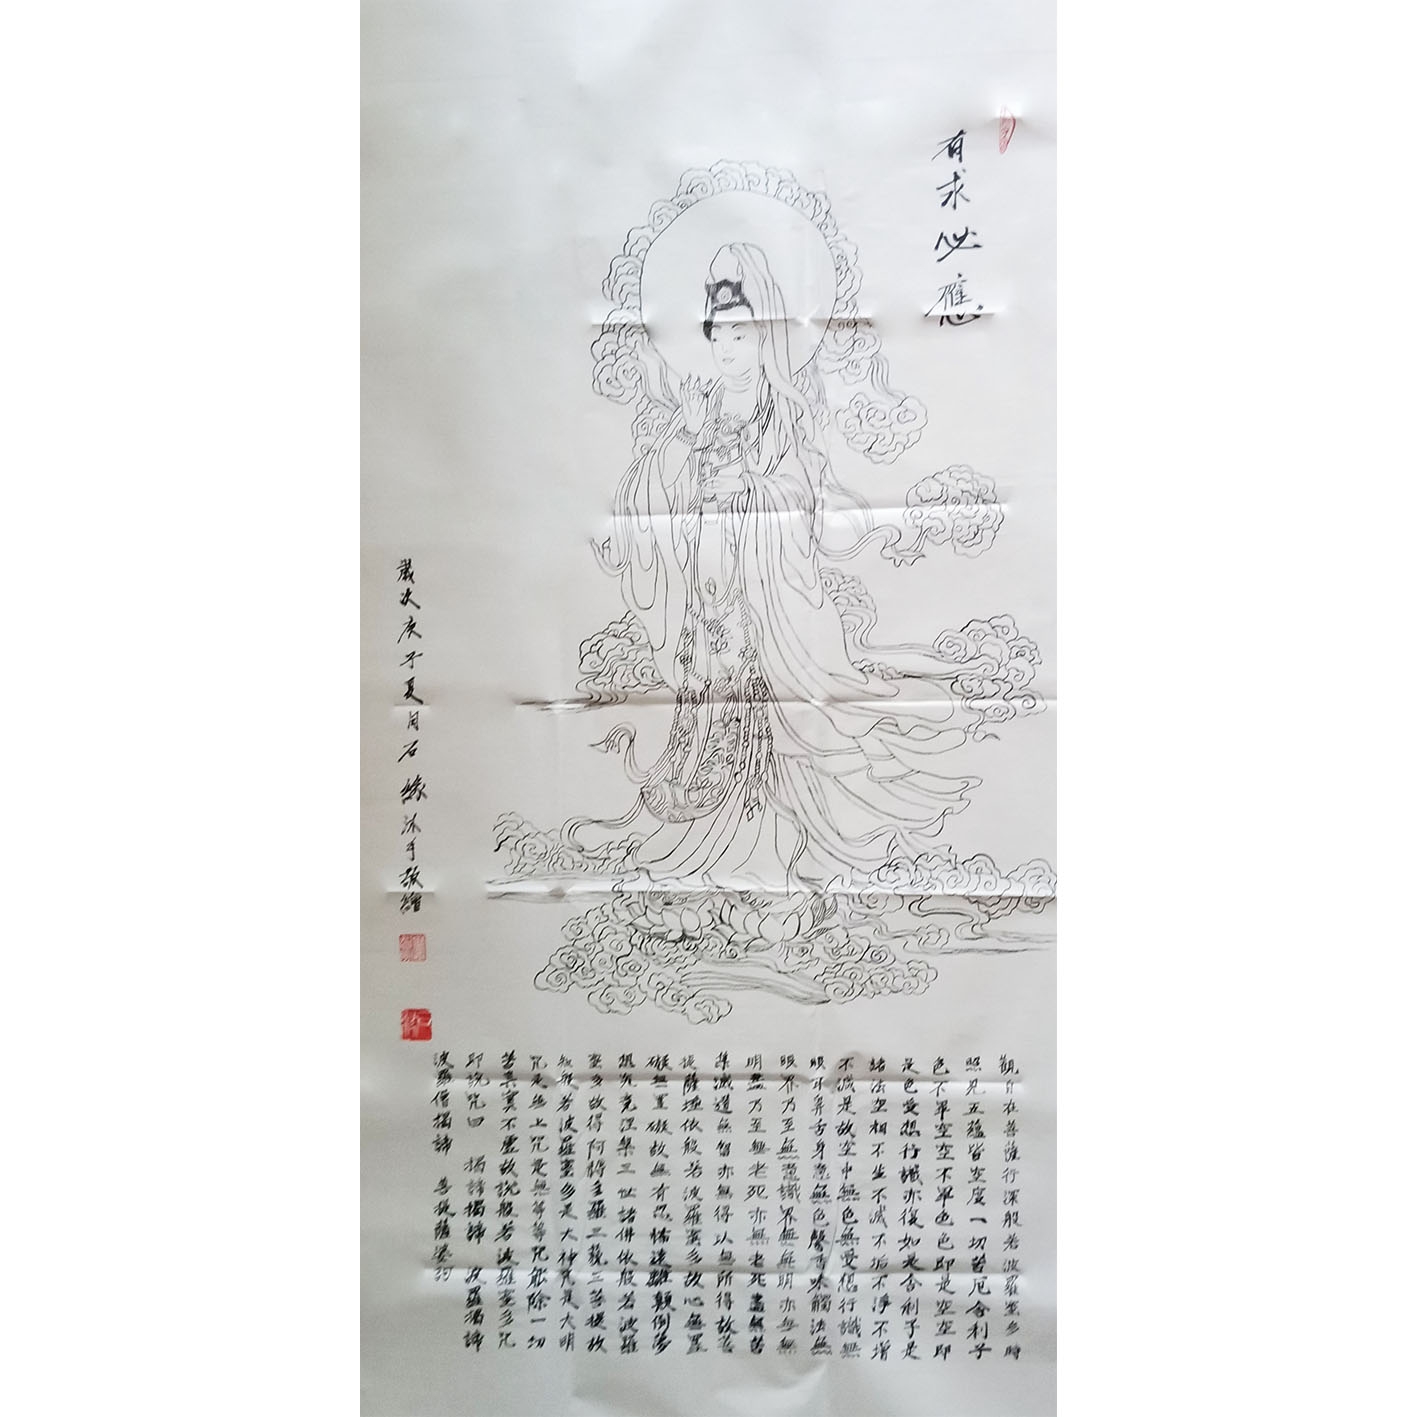 有求必應
觀自在菩薩行深般若波羅蜜多時
照見五蘊皆空度一切苦厄舍利子
色不異空空不異色色即是空空即
是色受想行識亦復如是舍利子是
諸法空相不生不滅不垢不淨不增
不減是故空中無色無受想行識無
眼耳鼻舌身意無色聲香味觸法無
眼界乃至無意識界無無明亦無無
明盡乃至無老死亦無老死盡無苦
集滅道無智亦無得以無所得故菩
提薩埵依般若波羅蜜多故心無罣
礙無罣礙故無有恐怖遠離顛倒夢
想究竟涅槃三世諸佛依般若波羅
蜜多故得阿耨多羅三藐三菩提故
知般若波羅蜜多是大神咒是大明
咒是無上咒是無等等咒能除一切
苦真實不虛故說般若波羅蜜多咒
即說咒曰 揭諦揭諦 波羅揭諦
波羅僧揭諦 菩提薩婆訶
歲次庚子夏月石緣沐手敬繪